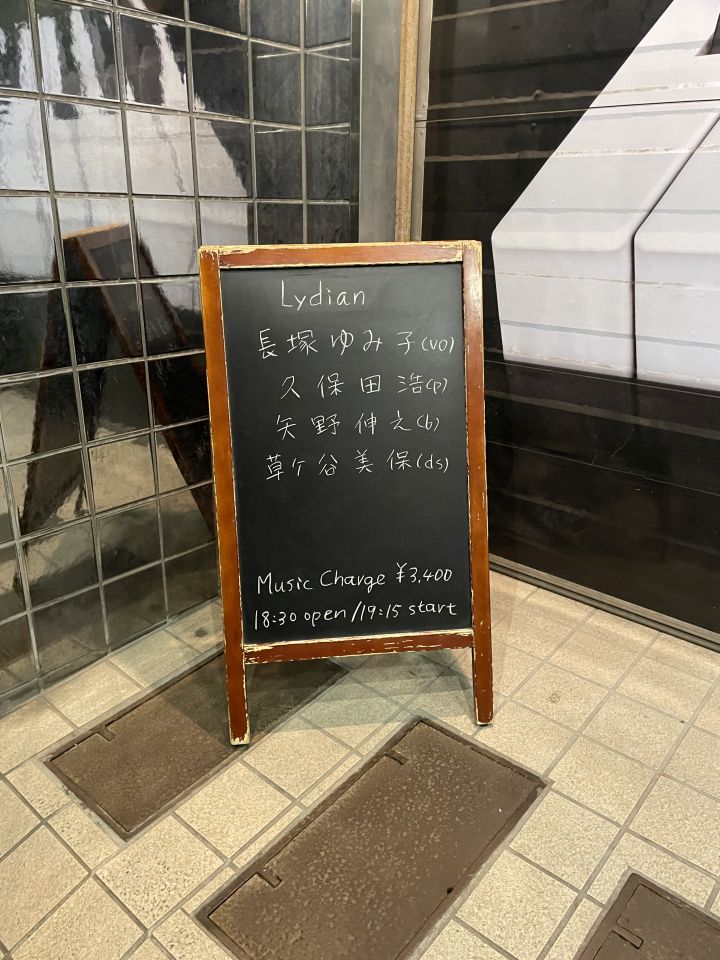 Lydian
長塚ゆみ子(vo)
久保田浩(p)
矢野伸之(b)
草ケ谷美保(ds)
Music Charge ¥3,400
18:30 open/19:15 start